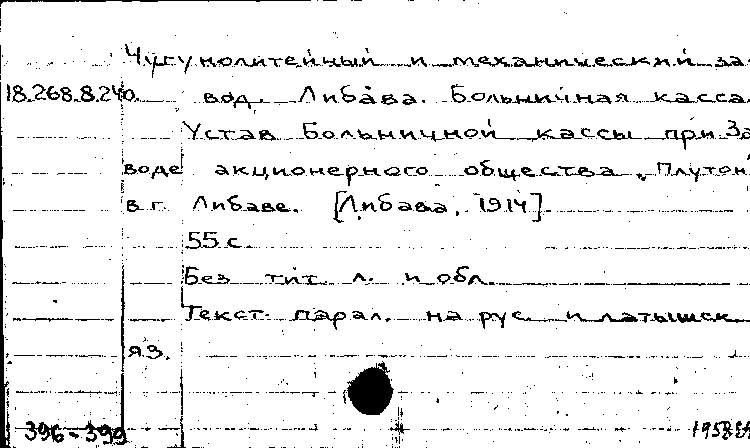 Чугунолитейный и механический за-
18.268.8.240. вод. Либава. Больничная касса.
Устав Больничной кассы при За-
воде акционерного общества „Плутон
в г. Либаве. [Либава, 1914].
55 с.
Без тит. л. и обл.
Текст парал. на рус. и латышск.
яз.
396-399